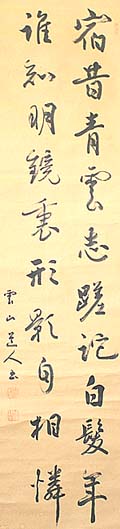 宿昔青雲志蹉跎白髮年
誰知明鏡裏形影自相憐
雲山道人書